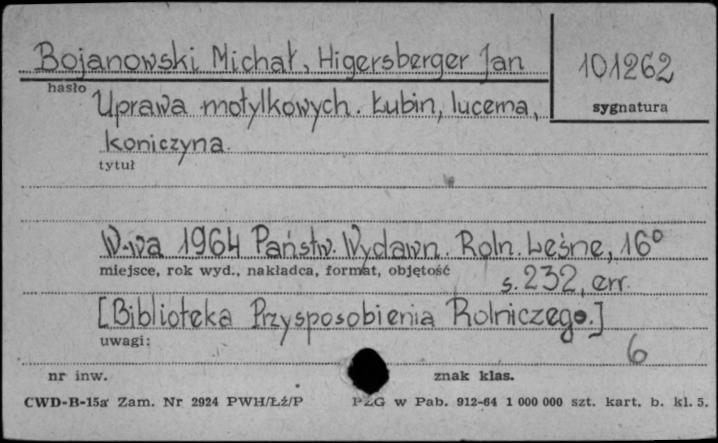 Bojanowski Michał, Higersberger Jan
101262
hasło
sygnatura
Uprawa motylkowych. Łubin, lucerna,
koniczyna.
tytuł
W-wa 1964 Państw. Wydawn. Roln. Leśne, 16°
miejsce, rok wyd., nakładca, format, objętość
s. 232, err.
[Biblioteka Przysposobienia Rolniczego.]
uwagi:
6
nr inw.
znak klas.
CWD-B-15a Zam. Nr 2924 PWH/Łź/P
PZG w Pab. 912-64 1 000 000 szt. kart. b. kl. 5.